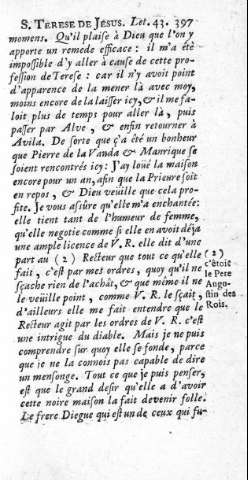 S. TERESE DE JESUS. Let. 43. 397
momens. Qu'il plaise à Dieu que l'on y
apporte un remede efficace : il m'a été
impossible d'y aller à cause de cette pro-
fession de Terese : car il n'y avoit point
d'apparence de la mener là avec moy,
moins encore de la laisser icy, & il me fa-
loit plus de temps pour aller là, puis
passer par Alve, & enfin retourner à
Avila. De sorte que ç'a été un bonheur
que Pierre de la Vanda & Manrique se
soient rencontrés icy : J'ay loüé la maison
encore pour un an, afin que la Prieure soit
en repos, & Dieu veüille que cela pro-
fite. Je vous assûre qu'elle m'a enchantée:
elle tient tant de l'humeur de femme,
qu'elle negotie comme si elle en avoit déja
une ample licence de V. R. elle dit d'une
part au (2) Recteur que tout ce qu'elle
fait, c'est par mes ordres, quoy qu'il ne
sçache rien de l'achât, & que même il ne
le veüille point, comme V. R. le sçait,
d'ailleurs elle me fait entendre que le
Recteur agit par les ordres de V. R. c'est
une intrigue du diable. Mais je ne puis
comprendre sur quoy elle se fonde, parce
que je ne la connois pas capable de dire
un mensonge. Tout ce que je puis penser,
est que le grand desir qu'elle a d'avoir
cette noire maison la fait devenir folle.
Le frere Diegue qui est un de ceux qui fu-
(2)
c'étoit
le Pere
Augo-
stin des
Rois.